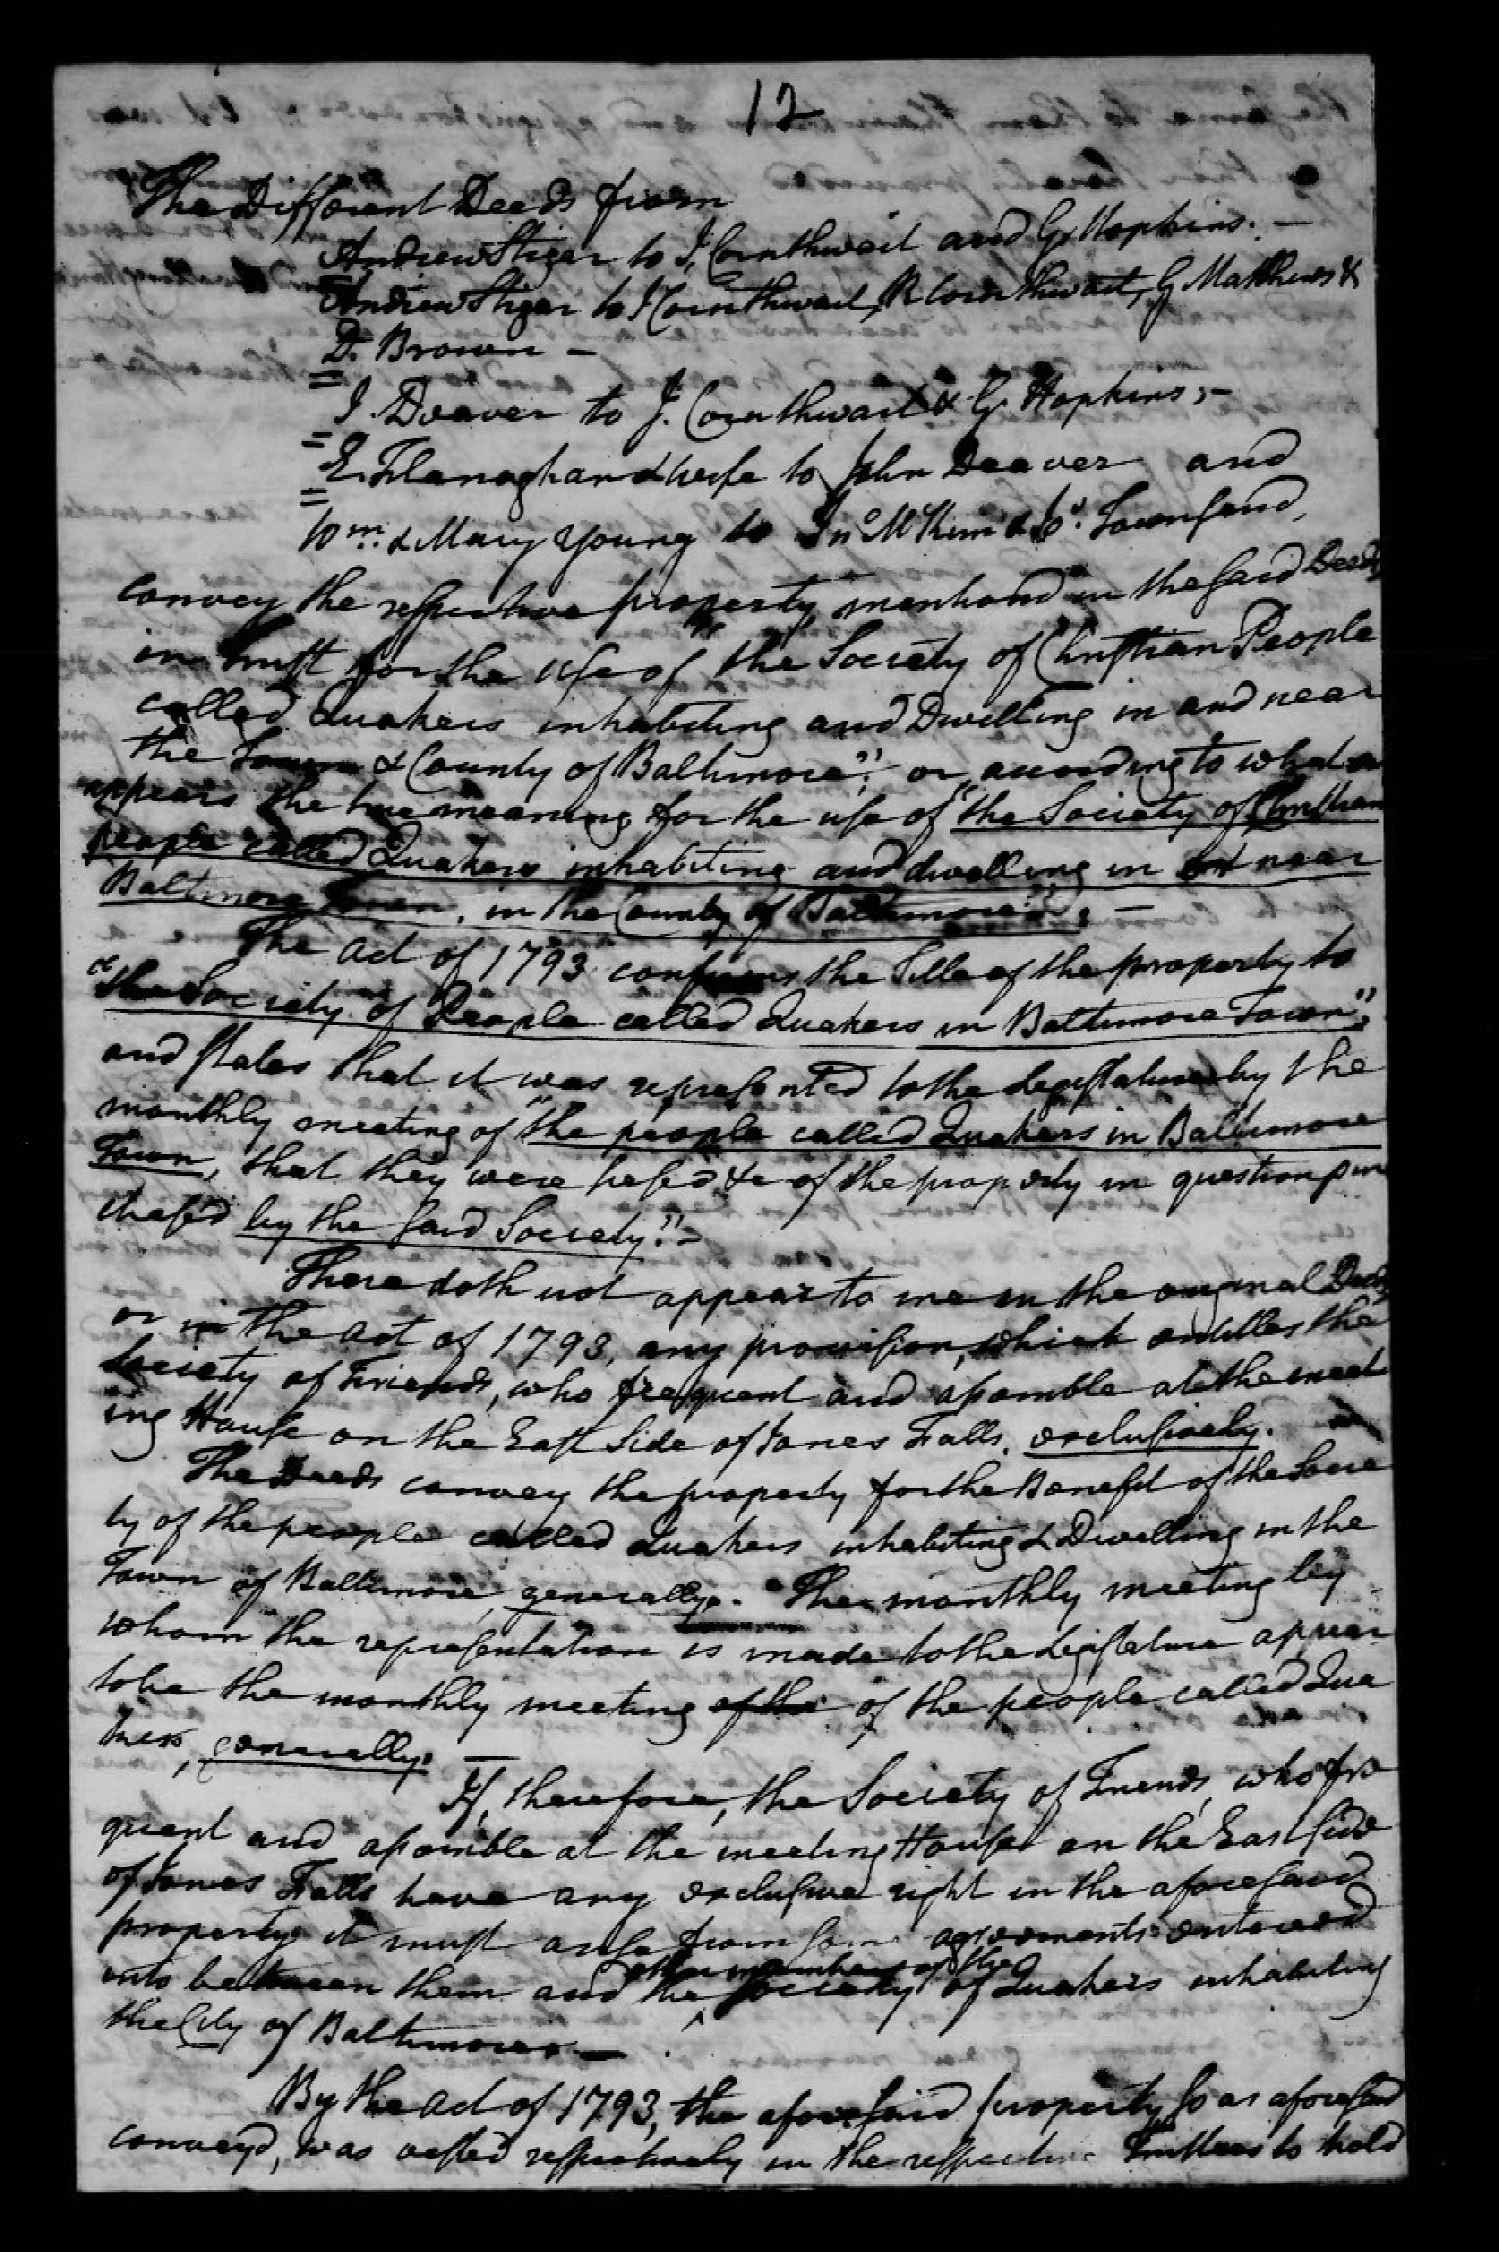 12
The Different Deeds from
Andrew Stiger to J. Cornthwait and G. Hopkins. —
Andrew Stiger to J Cornthwait, R Cornthwait, G Matthews &
D. Brown —
I. Deaver to J. Cornthwait & G. Hopkins, —
E. Flanaghan & wife to John Deaver and
Wm. & Mary Young to Jno McKim & Townsend,
convey the respective property mentioned in the said Deeds
in trust for the use of "the Society of Christian People
called Quakers inhabiting and Dwelling in and near
the Town & County of Baltimore" or according to what
appears the true meaning for the use of "the Society of Christian
people called Quakers inhabiting and dwelling in near
Baltimore Town, in the County of Baltimore": —
The act of 1793 confirms the title of the property to
"the Society of People called Quakers in Baltimore Town",
and states that it was represented to the Legislature by the
monthly meeting of "the people called Quakers in Baltimore
Town, that they were possed &c of the property in question pur
chased by the said Society." —
There doth not appear to me in the original Deeds
or in the act of 1793, any provision, which entitles the
Society of Friends, who frequent and assemble at the meet
ing House on the East Side of Jones Falls, exclusively.
The Deeds convey the property for the Benefit of the Socie
ty of the people called Quakers inhabiting & Dwelling in the
Town of Baltimore, generally. The monthly meeting by
whom the representation is made to the Legislature appear
to be the monthly meeting of the of the people called Qua
kers, generally. —
If, therefore, the Society of Friends, who fre
quent and assemble at the meeting House on the East side
of Jones Falls have any exclusive right in the aforesaid
property it must arise from some agreements entered
into between them and the other members of the Society of Quakers inhabiting
the City of Baltimore. —
By the act of 1793, the aforesaid property so as aforesaid
convey'd, was vested respectively in the respective Trustees to hold